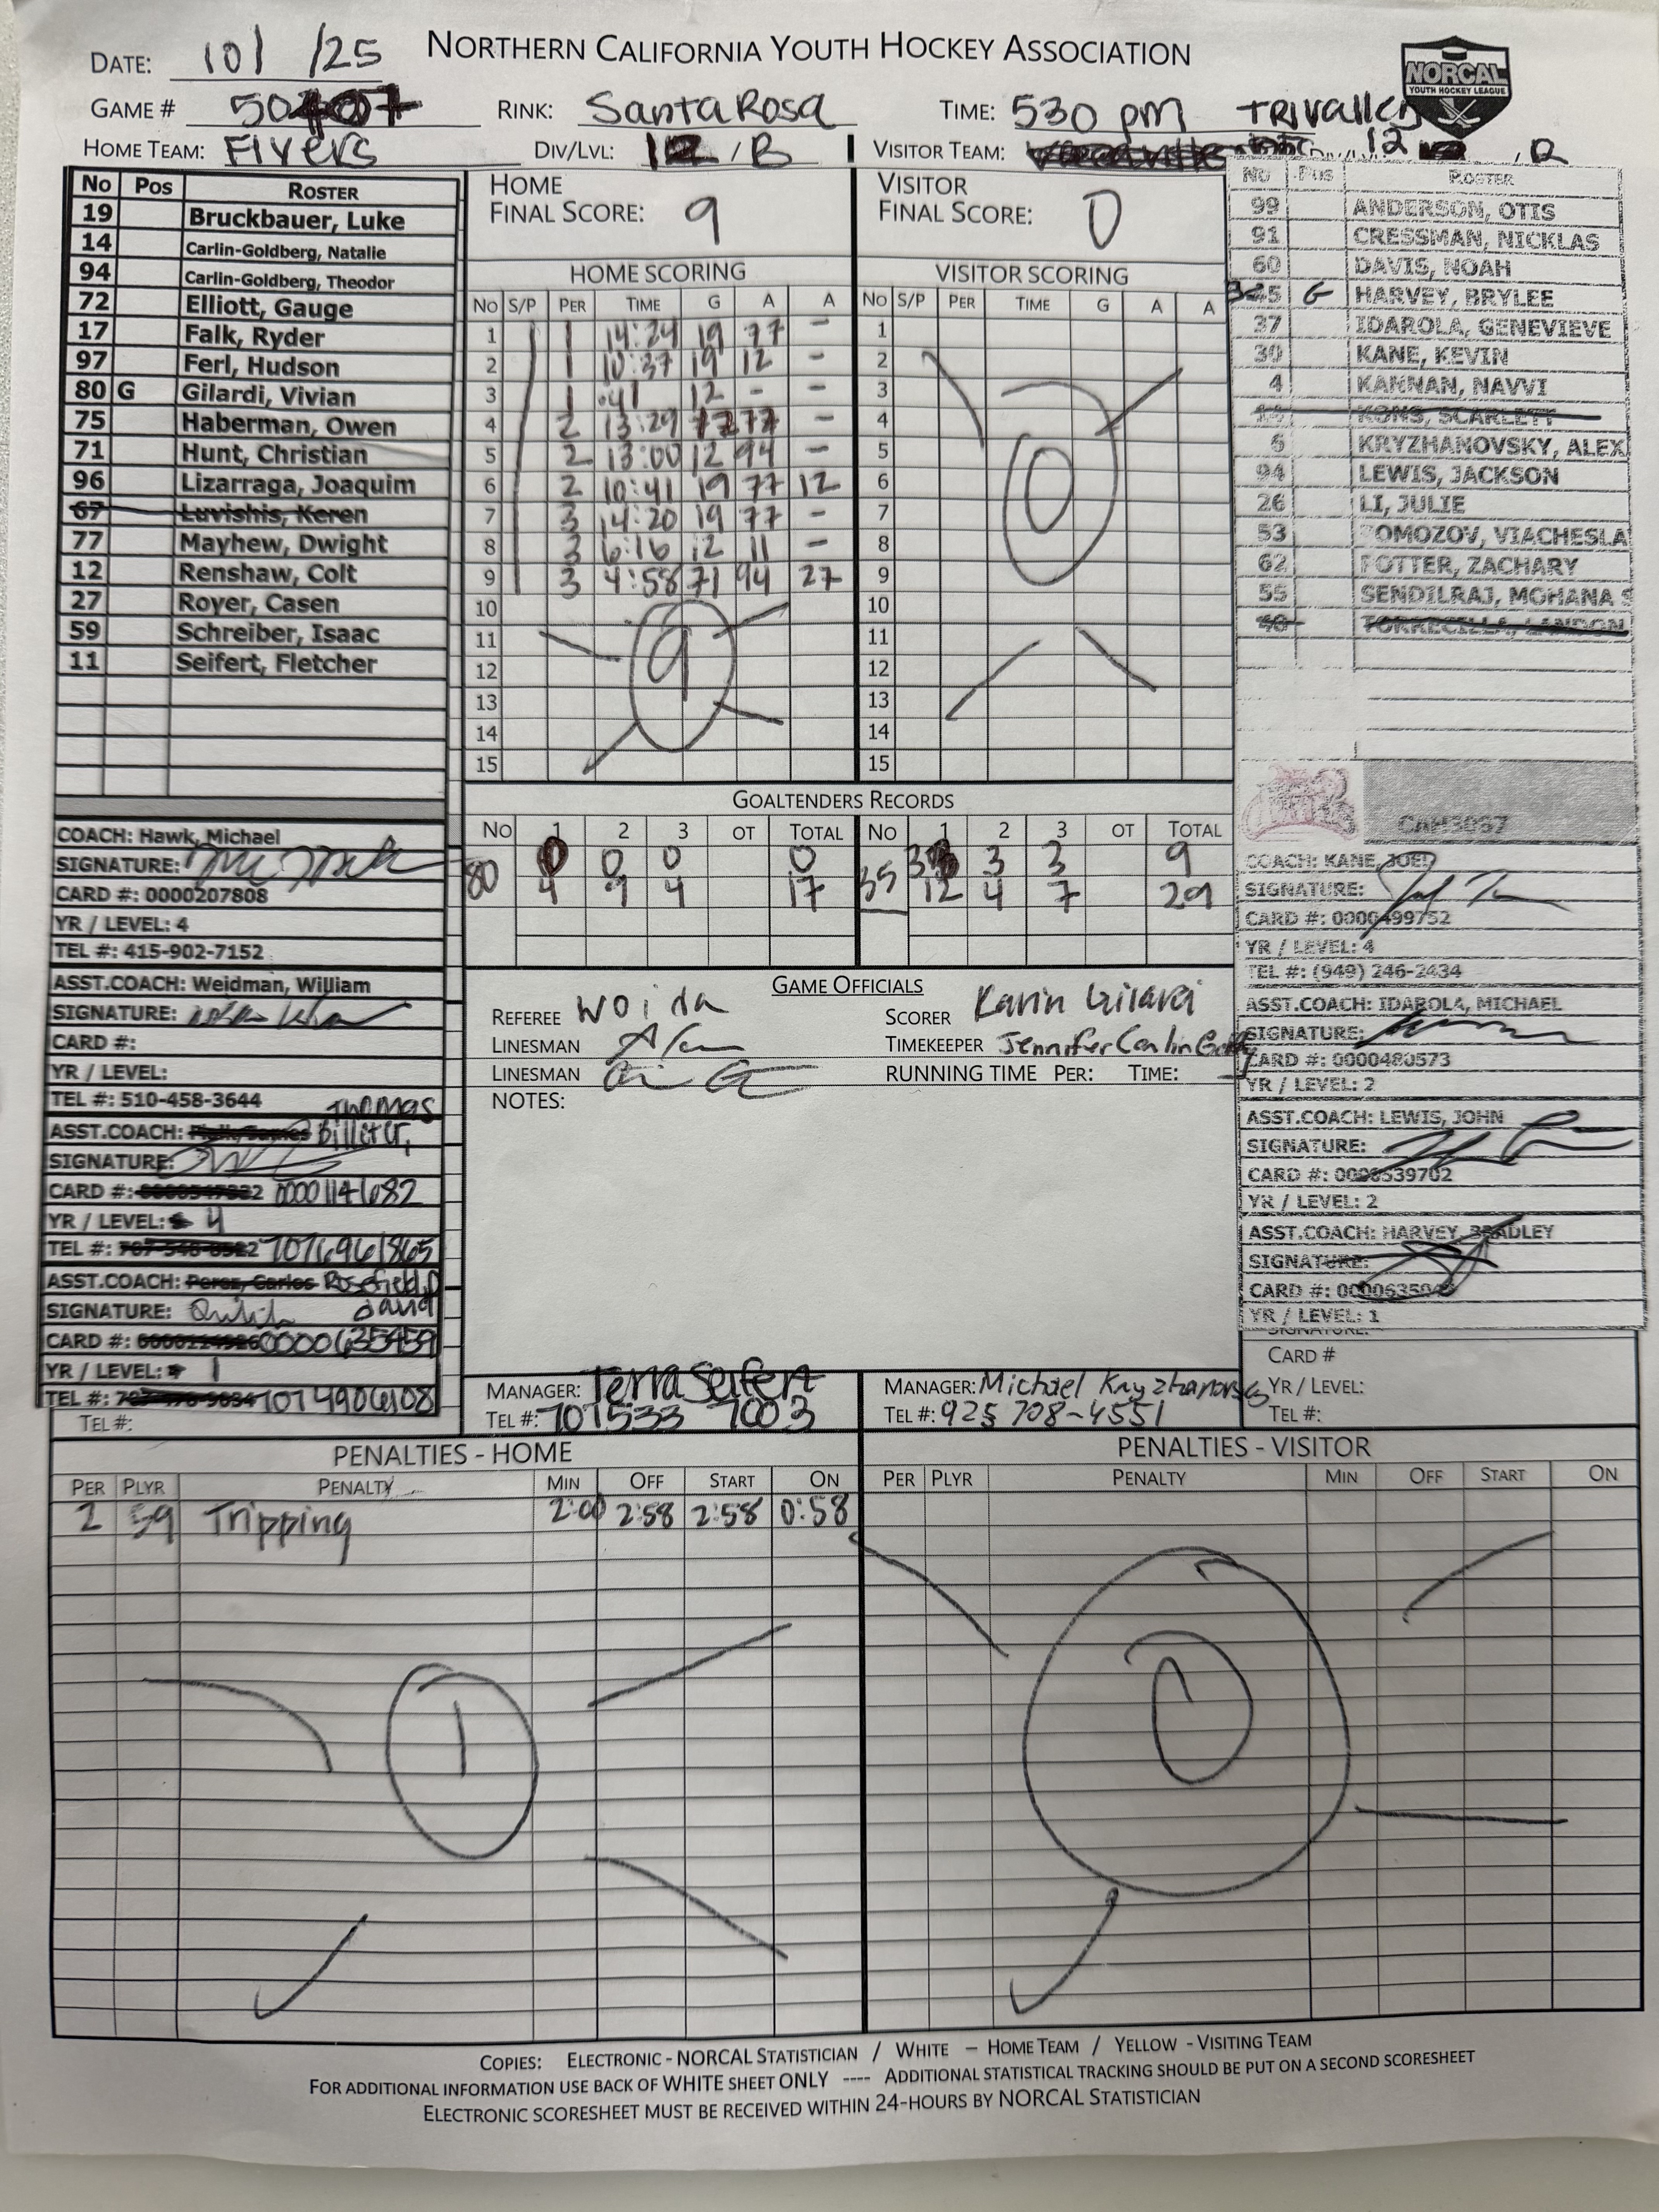 NORTHERN CALIFORNIA YOUTH HOCKEY ASSOCIATION
NORCAL
YOUTH HOCKEY LEAGUE
DATE: 10/ /25
GAME # RINK: Santa Rosa TIME: 530 pm Trivalley
HOME TEAM: Flyers DIV/LVL: 12 / B VISITOR TEAM: 12
No Pos ROSTER
19 Bruckbauer, Luke
14 Carlin-Goldberg, Natalie
94 Carlin-Goldberg, Theodor
72 Elliott, Gauge
17 Falk, Ryder
97 Ferl, Hudson
80 G Gilardi, Vivian
75 Haberman, Owen
71 Hunt, Christian
96 Lizarraga, Joaquim
67 Luvishis, Keren
77 Mayhew, Dwight
12 Renshaw, Colt
27 Royer, Casen
59 Schreiber, Isaac
11 Seifert, Fletcher
HOME
FINAL SCORE: 9
HOME SCORING
NO S/P PER TIME G A A
1 1 14:24 19 77 -
2 1 10:37 19 12 -
3 1 :41 12 - -
4 2 13:29 77 -
5 2 13:00 12 94 -
6 2 10:41 19 77 12
7 3 14:20 19 77 -
8 3 6:16 12 11 -
9 3 4:58 71 94 27
10
11
12
13
14
15
9
VISITOR
FINAL SCORE: 0
VISITOR SCORING
NO S/P PER TIME G A A
1
2
3
4
5
6
7
8
9
10
11
12
13
14
15
0
No Pos ROSTER
99 ANDERSON, OTIS
91 CRESSMAN, NICKLAS
60 DAVIS, NOAH
G HARVEY, BRYLEE
37 IDAROLA, GENEVIEVE
30 KANE, KEVIN
4 KANNAN, NAVVI
KONS, SCARLETT
6 KRYZHANOVSKY, ALEX
94 LEWIS, JACKSON
26 LI, JULIE
53 POMOZOV, VIACHESLA
62 POTTER, ZACHARY
55 SENDILRAJ, MOHANA S
40 TORRECILLA, LANDON
GOALTENDERS RECORDS
NO 1 2 3 OT TOTAL NO 1 2 3 OT TOTAL
80 0 0 0 0 35 3 3 3 9
4 9 4 17 12 4 7 29
COACH: Hawk, Michael
SIGNATURE:
CARD #: 0000207808
YR / LEVEL: 4
TEL #: 415-902-7152
ASST.COACH: Weidman, William
SIGNATURE:
CARD #:
YR / LEVEL:
TEL #: 510-458-3644
ASST.COACH: Thomas
SIGNATURE:
CARD #: 0000114682
YR / LEVEL: 4
TEL #: 7076961865
ASST.COACH: Perez, Carlos Rosefield, David
SIGNATURE:
CARD #: 0000635459
YR / LEVEL: 1
TEL #: 7074906108
TEL #:
GAME OFFICIALS
REFEREE Woida SCORER Karin Gilardi
LINESMAN TIMEKEEPER Jennifer Carlin
LINESMAN RUNNING TIME PER: TIME:
NOTES:
MANAGER: Terra Seifert
TEL #: 707 533 7003
MANAGER: Michael Kryzhanovsky
TEL #: 925 708-4551
CAH3087
COACH: KANE, JOEL
SIGNATURE:
CARD #: 0000499752
YR / LEVEL: 4
TEL #: (949) 246-2434
ASST.COACH: IDAROLA, MICHAEL
SIGNATURE:
CARD #: 0000480573
YR / LEVEL: 2
ASST.COACH: LEWIS, JOHN
SIGNATURE:
CARD #: 0000539702
YR / LEVEL: 2
ASST.COACH: HARVEY, BRADLEY
SIGNATURE:
CARD #:
YR / LEVEL: 1
SIGNATURE:
CARD #
YR / LEVEL:
TEL #:
PENALTIES - HOME
PER PLYR PENALTY MIN OFF START ON
2 59 Tripping 2:00 2:58 2:58 0:58
1
PENALTIES - VISITOR
PER PLYR PENALTY MIN OFF START ON
0
COPIES: ELECTRONIC - NORCAL STATISTICIAN / WHITE – HOME TEAM / YELLOW - VISITING TEAM
FOR ADDITIONAL INFORMATION USE BACK OF WHITE SHEET ONLY ---- ADDITIONAL STATISTICAL TRACKING SHOULD BE PUT ON A SECOND SCORESHEET
ELECTRONIC SCORESHEET MUST BE RECEIVED WITHIN 24-HOURS BY NORCAL STATISTICIAN